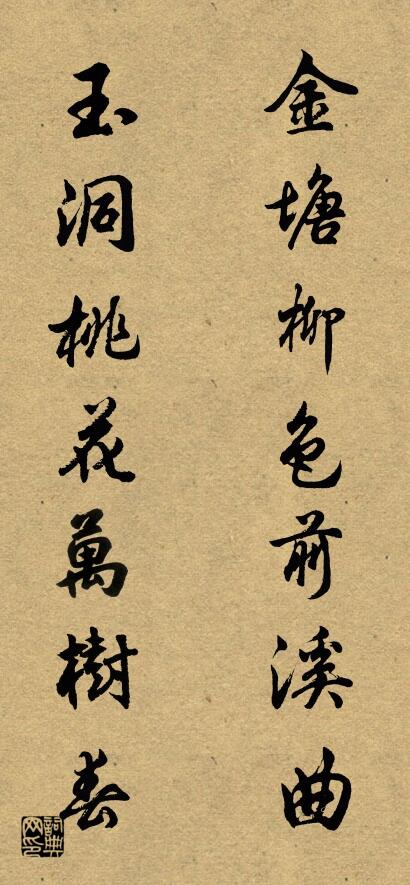 金塘柳色前溪曲
玉洞桃花萬樹春
詞典网印